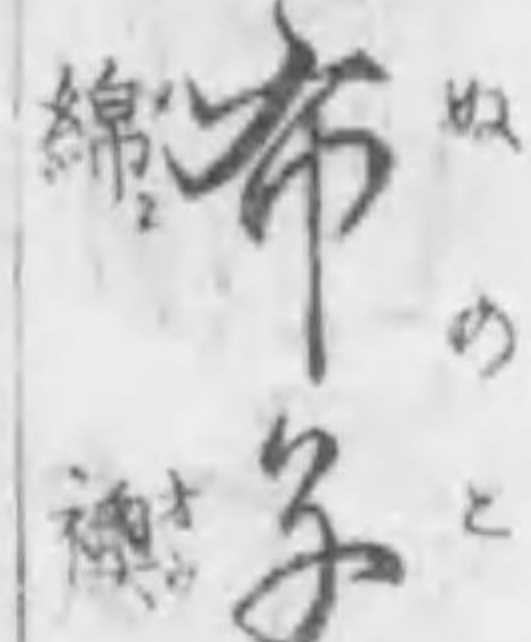 ぬのこ
布子
綿襖